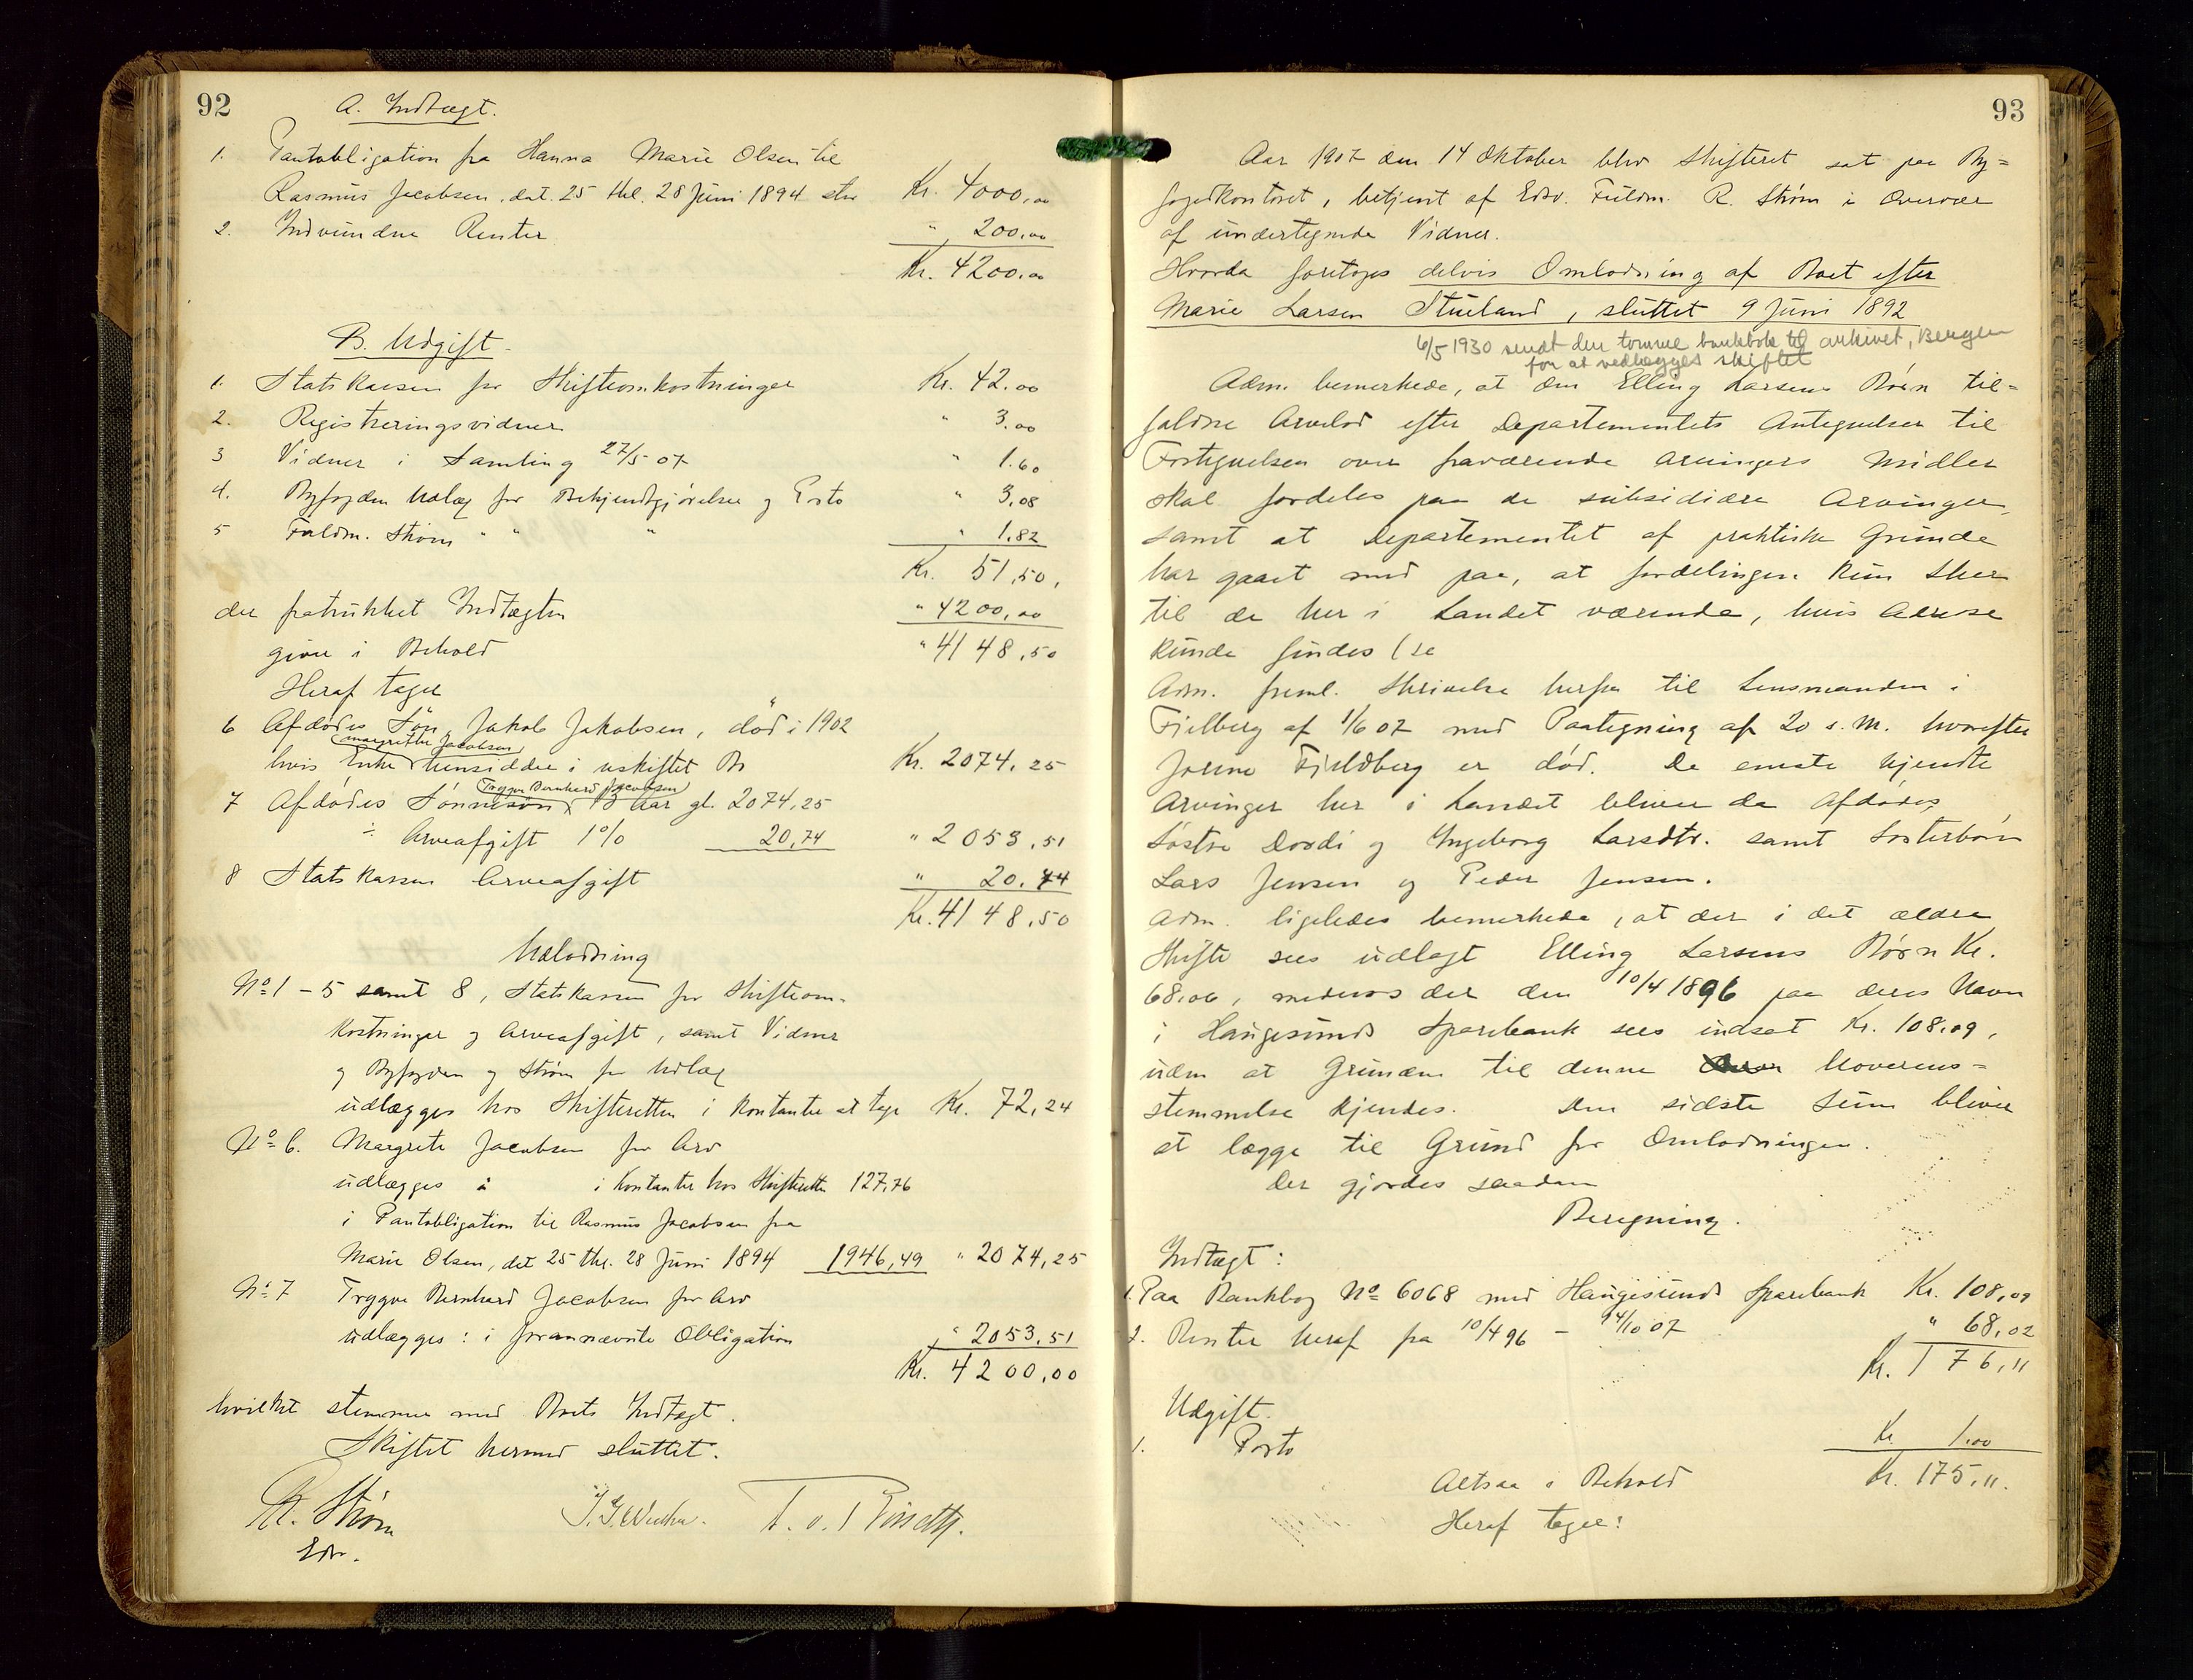 92
A. Indtægt.
1. Pantobligation fra Hanna Marie Olsen til
Rasmus Jacobsen, dat. 25 thl. 28 Juni 1894 stor Kr. 4000,00
2. Indvundne Renter " 200,00
Kr. 4200,00
B. Udgift.
1. Statskassen for Skifteomkostninger Kr. 42.00
2. Registreringsvidner " 3.00
3 Vidner i Samling 27/5 07 " 1.60
4. Byfogden Udlæg for Bekjendtgjørelse og Porto " 3,08
5 Fuldm. Strøm " " " " 1,82
Kr. 51,50,
der fratrukket Indtægten " 4200,00
giver i Behold " 4148,50
Heraf tager
6 Afdødes Søn, Jakob Jakobsen, død i 1902
Margrethe Jacobsen
hvis Enke hensidder i uskiftet Bo Kr. 2074,25
Trygve Bernhard Jacobsen
7 Afdødes Sønnesøn, 13 Aar gl. 2074,25
÷ Arveafgift 1% 20,74 " 2053,51
8 Statskassen Arveafgift " 20.74
Kr. 4148,50
Udlodning
No 1 – 5 samt 8, Statskassen for Skifteom-
kostninger og Arveafgift, samt Vidner
og Byfogden og Strøm for Udlæg
udlægges hos Skifteretten i Kontanter at tage Kr. 72,24
No 6. Margrete Jacobsen for Arv
udlægges i Kontanter hos Skifteretten 127,76
i Pantobligation til Rasmus Jacobsen fra
Marie Olsen, dat 25 thl. 28 Juni 1894 1946,49 " 2074,25
No 7 Trygve Bernhard Jacobsen for Arv
udlægges: i forannævnte Obligation " 2053,51
Kr. 4200,00
hvilket stemmer med Boets Indtægt.
Skiftet hermed sluttet.
R. Strøm
Edv.
93
Aar 1907 den 14 Oktober blev Skifteret sat paa By=
fogedkontoret, betjent af Edsv. Fuldm. R. Strøm i Overvær
af undertegnede Vidner.
Hvorda foretoges delvis Omlodning af Boet efter
Marie Larsen Stueland, sluttet 9 Juni 1892
6/5 1930 sendt den tomme bankbok til arkivet, Bergen
for at vedlægges skiftet
Adm. bemerkede, at den Elling Larsens Børn til=
faldne Arvelod efter Departementets Antegnelser til
Fortegnelsen over fraværende Arvingers Midler
skal fordeles paa de subsidiære Arvinger,
samt at Departementet af praktiske Grunde
har gaaet med paa, at fordelingen kun sker
til de her i Landet værende, hvis Adresse
kunde findes (se
Adm. freml. Skrivelse herfra til Lensmanden i
Fjelberg af 1/6 07 med Paategning af 20 s. M. hvorefter
Fjeldberg er død. De eneste kjendte
Arvinger her i Landet bliver da Afdødes
Søstre Dordi og Ingeborg Larsdtr. samt Søsterbørn
Lars Jensen og Peder Jensen.
Adm. ligeledes bemerkede, at der i det ældre
Skifte sees udlagt Elling Larsens Børn Kr.
68.06, medens der den 10/4 1896 paa deres Navn
i Haugesunds Sparebank sees indsat Kr. 108.09,
uden at Grunden til denne Uoverens=
stemmelse kjendes. Den sidste Sum bliver
at lægge til Grund for Omlodningen.
Der gjordes saadan
Beregning.
Indtægt:
1. Paa Bankbog No 6068 med Haugesunds Sparebank Kr. 108,09
2. Renter heraf fra 10/4 96 – 14/10 07 " 68,02
Kr. 176,11
Udgift.
1. Porto Kr 1.00
Altsaa i Behold Kr. 175,11.
Heraf tager: